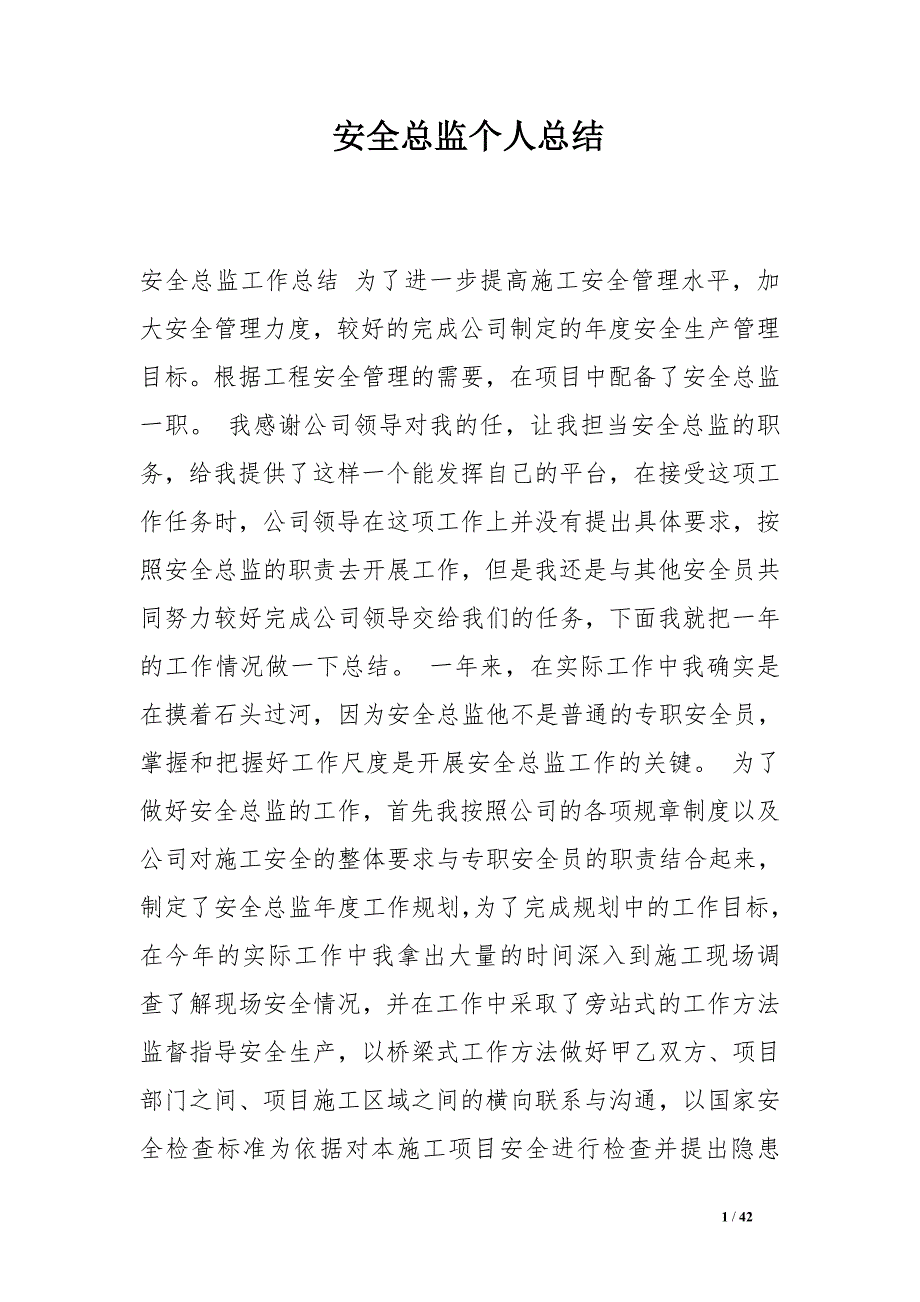 安全总监个人总结
安全总监工作总结 为了进一步提高施工安全管理水平，加
大安全管理力度，较好的完成公司制定的年度安全生产管理
目标。根据工程安全管理的需要，在项目中配备了安全总监
一职。 我感谢公司领导对我的任，让我担当安全总监的职
务，给我提供了这样一个能发挥自己的平台，在接受这项工
作任务时，公司领导在这项工作上并没有提出具体要求，按
照安全总监的职责去开展工作，但是我还是与其他安全员共
同努力较好完成公司领导交给我们的任务，下面我就把一年
的工作情况做一下总结。 一年来，在实际工作中我确实是
在摸着石头过河，因为安全总监他不是普通的专职安全员，
掌握和把握好工作尺度是开展安全总监工作的关键。 为了
做好安全总监的工作，首先我按照公司的各项规章制度以及
公司对施工安全的整体要求与专职安全员的职责结合起来，
制定了安全总监年度工作规划，为了完成规划中的工作目标，
在今年的实际工作中我拿出大量的时间深入到施工现场调
查了解现场安全情况，并在工作中采取了旁站式的工作方法
监督指导安全生产，以桥梁式工作方法做好甲乙双方、项目
部门之间、项目施工区域之间的横向联系与沟通，以国家安
全检查标准为依据对本施工项目安全进行检查并提出隐患
1 / 42